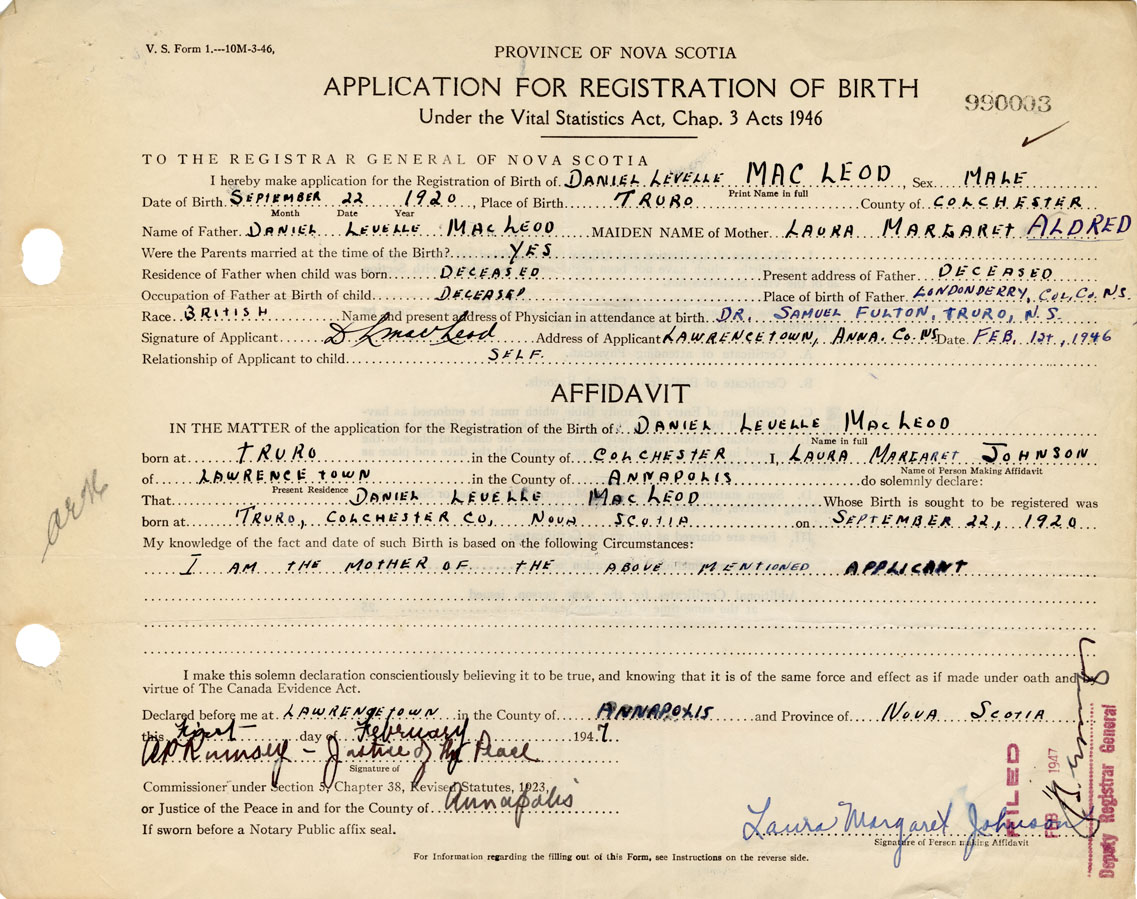 V. S. Form 1.---10M-3-46,
PROVINCE OF NOVA SCOTIA
APPLICATION FOR REGISTRATION OF BIRTH
990003
Under the Vital Statistics Act, Chap. 3 Acts 1946
TO THE REGISTRAR GENERAL OF NOVA SCOTIA
I hereby make application for the Registration of Birth of DANIEL LEVELLE MAC LEOD, Sex MALE
Print Name in full
Date of Birth SEPTEMBER 22 1920, Place of Birth TRURO County of COLCHESTER
Month Date Year
Name of Father DANIEL LEVELLE MACLEOD MAIDEN NAME of Mother LAURA MARGARET ALDRED
Were the Parents married at the time of the Birth? YES
Residence of Father when child was born DECEASED Present address of Father DECEASED
Occupation of Father at Birth of child DECEASED Place of birth of Father LONDONDERRY, COL. CO. N.S.
Race BRITISH Name and present address of Physician in attendance at birth DR. SAMUEL FULTON, TRURO, N.S.
Signature of Applicant D L MacLeod Address of Applicant LAWRENCETOWN, ANNA. CO. NS Date FEB. 1st, 1946
Relationship of Applicant to child SELF
AFFIDAVIT
IN THE MATTER of the application for the Registration of the Birth of DANIEL LEVELLE MACLEOD
Name in full
born at TRURO in the County of COLCHESTER I, LAURA MARGARET JOHNSON
Name of Person Making Affidavit
of LAWRENCETOWN in the County of ANNAPOLIS do solemnly declare:
Present Residence
That DANIEL LEVELLE MACLEOD Whose Birth is sought to be registered was
born at TRURO, COLCHESTER CO, NOVA SCOTIA on SEPTEMBER 22, 1920
My knowledge of the fact and date of such Birth is based on the following Circumstances:
I AM THE MOTHER OF THE ABOVE MENTIONED APPLICANT
I make this solemn declaration conscientiously believing it to be true, and knowing that it is of the same force and effect as if made under oath and by
virtue of The Canada Evidence Act.
Declared before me at LAWRENCETOWN in the County of ANNAPOLIS and Province of NOVA SCOTIA
this First day of February 1947
Rumsey - Justice of the Peace
Signature of
Commissioner under Section 5, Chapter 38, Revised Statutes, 1923,
or Justice of the Peace in and for the County of Annapolis
If sworn before a Notary Public affix seal.
Laura Margaret Johnson
Signature of Person making Affidavit
For Information regarding the filling out of this Form, see Instructions on the reverse side.
FILED
FEB 1947
Deputy Registrar General